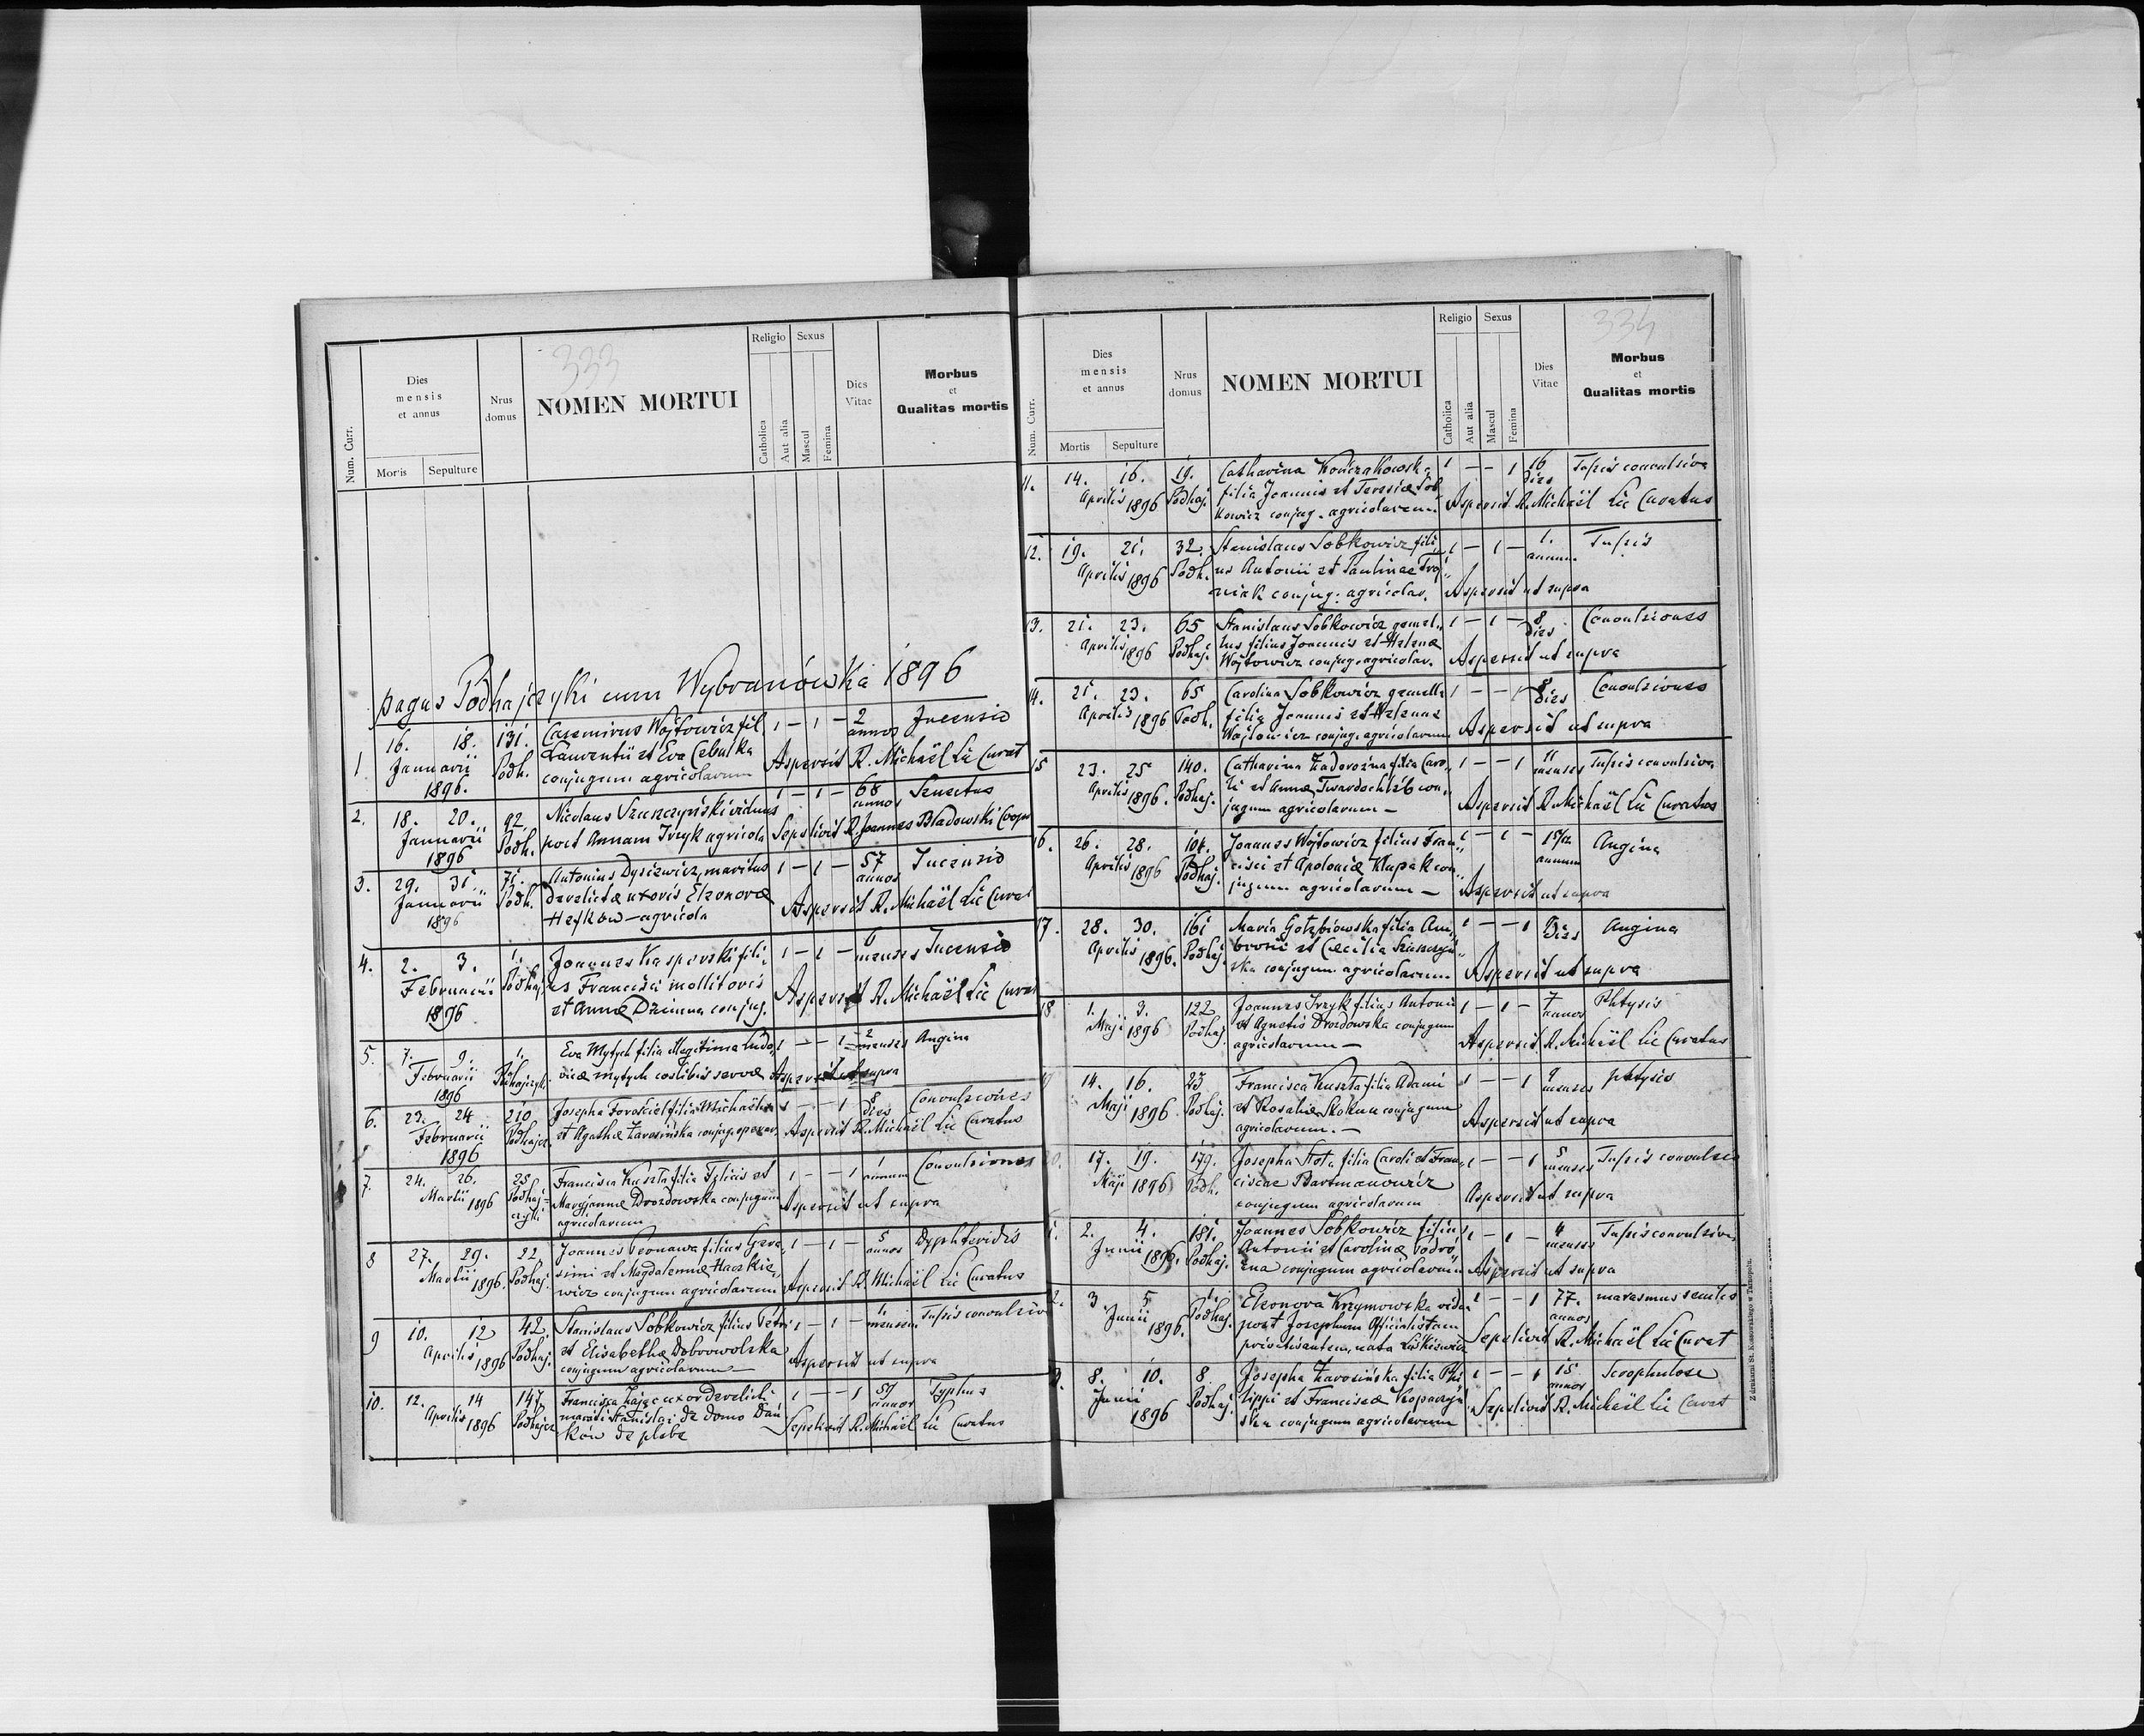 333
Num. Curr.
Dies mensis et annus
Mortis Sepulture
Nrus domus
NOMEN MORTUI
Religio Sexus
Catholica Aut alia Mascul Femina
Dies Vitae
Morbus et Qualitas mortis
pagus Podhajczyki cum Wybranówka 1896
1 16. 18. 131. Casemirus Wójtowicz fil. 1 — 1 — 2 annos Incensio
Januarii Podh. Laurentii et Eva Cebulka Aspersit R. Michaël Lic Curat
1896. conjugum agricolarum
2. 18. 20. 92. Nicolaus Szuszczyński viduus 1 — 1 — 68 annos Senectus
Januarii Podh. post Annam Irzyk agricola Sepelivit R. Joannes Bladowski Coop
1896
3. 29. 31. 71. Antonius Dysiewicz, maritus 1 — 1 — 57 annos Incensio
Januarii Podh. derelictæ uxoris Eleonoræ Aspersit R. Michaël Lic Curat
1896 — agricola
4. 2. 3. 1. Joannes Kasperski fili„ 1 — 1 — 6 menses Incensio
Februarii Podhaj. us Francisci mollitoris Aspersit R. Michaël Lic Curat
1896 et Annæ Dziuma conjug.
5. 7. 9. 1. Eva Mytych filia illegitima Ludo„ 1 — — 1 2 menses Angina
Februarii Podhajczyk. vicæ Mytych coelibis servæ Aspersit ut supra
1896
6. 23. 24 210 Josepha Forościel filia Michaëlis 1 — — 1 8 dies Convulsiones
Februarii Podhajcz. et Agathæ Zarosińska conjug. operar. Aspersit R. Michaël Lic Curatus
1896
7. 24. 26. 25 Francisca Kuszta filia Felicis et 1 — — 1 1 annum Convulsiones
Martii 1896 Podhaj= Maryjannæ Drozdowska conjugum Aspersit ut supra
czyki agricolarum
8 27. 29. 22. Joannes filius Gera„ 1 — 1 — 5 annos Dyphteridis
Martii 1896. Podhaj. simi et Magdalennæ Haczkie„ Aspersit R. Michaël Lic Curatus
wicz conjugum agricolarum
9 10. 12 42. Stanislaus Sobkowicz filius Petri 1 — 1 — 1. mensem Tussis convulsiva
Aprilis 1896 Podhaj. et Elisabethæ Dobrowolska Aspersit ut supra
conjugum agricolarum —
10. 12. 14 147 Francisca Zając uxor derelicti 1 — — 1 57 annos Typhus
Aprilis 1896 Podhajcz mariti Stanislai de domo Dań Sepelivit R. Michaël Lic Curatus
ków de plebe
334
Num. Curr.
Dies mensis et annus
Mortis Sepulture
Nrus domus
NOMEN MORTUI
Religio Sexus
Catholica Aut alia Mascul Femina
Dies Vitae
Morbus et Qualitas mortis
11. 14. 16. 19. Catharina Kończakowska 1 — — 1 16 dies Tussis convulsiva
Aprilis 1896 Podhaj. filia Joannis et Teresiæ Sob„ Aspersit R. Michaël Lic Curatus
kowicz conjug. agricolarum
12. 19. 21. 32. Stanislaus Sobkowicz fili„ 1 — 1 — 1. annum Tussis
Aprilis 1896 Podh. us Antonii et Paulinae Troj„ Aspersit ut supra
niak conjug: agricolar.
13. 21. 23. 65 Stanislaus Sobkowicz gemel„ 1 — 1 — 8 dies Convulsiones
Aprilis 1896 Podhaj. lus filius Joannis et Helenæ Aspersit ut supra
Wójtowicz conjug. agricolar.
14. 21. 23. 65 Carolina Sobkowicz gemella 1 — — 1 8 dies Convulsiones
Aprilis 1896 Podh. filia Joannis et Helenæ Aspersit ut supra
Wójtowicz conjug. agricolarum
15 23. 25 140. Catharina Zadorożna filia Caro„ 1 — — 1 11 menses Tussis convulsiva
Aprilis 1896. Podhaj. li et Annæ Twardochléb con„ Aspersit R. Michaël Lic Curatus
jugum agricolarum —
16. 26. 28. 104. Joannes Wójtowicz filius Fran„ 1 — 1 — annum Angina
Aprilis 1896 Podhaj. cisci et Apoloniæ Klupak con„ Aspersit ut supra
jugum agricolarum —
17. 28. 30. 161 Maria Gołębiowska filia Am„ 1 — — 1 dies Angina
Aprilis 1896. Podhaj. brosii et Cæcilia Szuszczyń„ Aspersit ut supra
ska conjugum agricolarum
18 1. 3. 122 Joannes Irzyk filius Antonii 1 — 1 — 7 annos Phtysis
Maji 1896 Podhaj. et Agnetis Drozdowska conjugum Aspersit R. Michaël Lic Curatus
agricolarum —
14. 16. 25 Francisca Kuszta filia Adami 1 — — 1 9 menses phtysis
Maji 1896 Podhaj. et Rosaliæ Skokun conjugum Aspersit ut supra
agricolarum. —
20. 17. 19. 179. Josepha Słota filia Caroli et Fran„ 1 — — 1 5 menses Tussis convulsiv
Maji 1896 Podh. ciscae Bartmanowicz Aspersit ut supra
conjugum agricolarum
1. 2. 4. 181. Joannes Sobkowicz filius 1 — 1 — 4 menses Tussis convulsiva
Junii 1896. Podhaj. Antonii et Carolinæ Podro„ Aspersit ut supra
żna conjugum agricolarum
2. 3. 5 1. Eleonora Krzymowska vidua 1 — — 1 77. annos marasmus senilis
Junii 1896. Podhaj. post Josephum Officialistam Sepelivit R. Michaël Lic Curat
privatisantem, nata Liśkiewicz
8. 10. 8 Josepha Zarosińska filia Phi 1 — — 1 15 annos Scrophulose
Junii 1896 Podhaj. lippi et Franciscæ Kopaczyń Sepelivit R. Michaël Lic Curat
ska conjugum agricolarum
Z drukarni St. Kossowskiego w Tarnopolu.